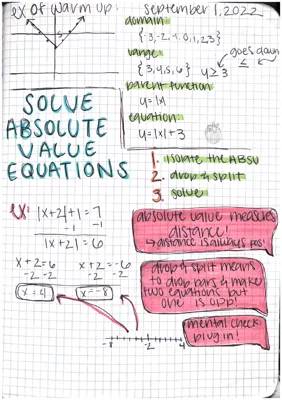 ex of warm up:
september 1, 2022
domain
{-3,-2,-1,0,1,2,3}
range
goes down
{3,4,5,6} y≥3
≤ <
parent function
y=|x|
equation:
y=|x|+3
SOLVE
ABSOLUTE
VALUE
EQUATIONS
1. isolate the ABSV
2. drop & split
3. solve
ex: |x+2|+1=7
-1 -1
|x+2|=6
x+2=6 x+2=-6
-2 -2 -2 -2
x=4 x=-8
absolute value measures
distance!
↳ distance is always pos!
drop & split means
to drop bars & make
two equations but
one is opp!
mental check
plug in!
-8 -2 4